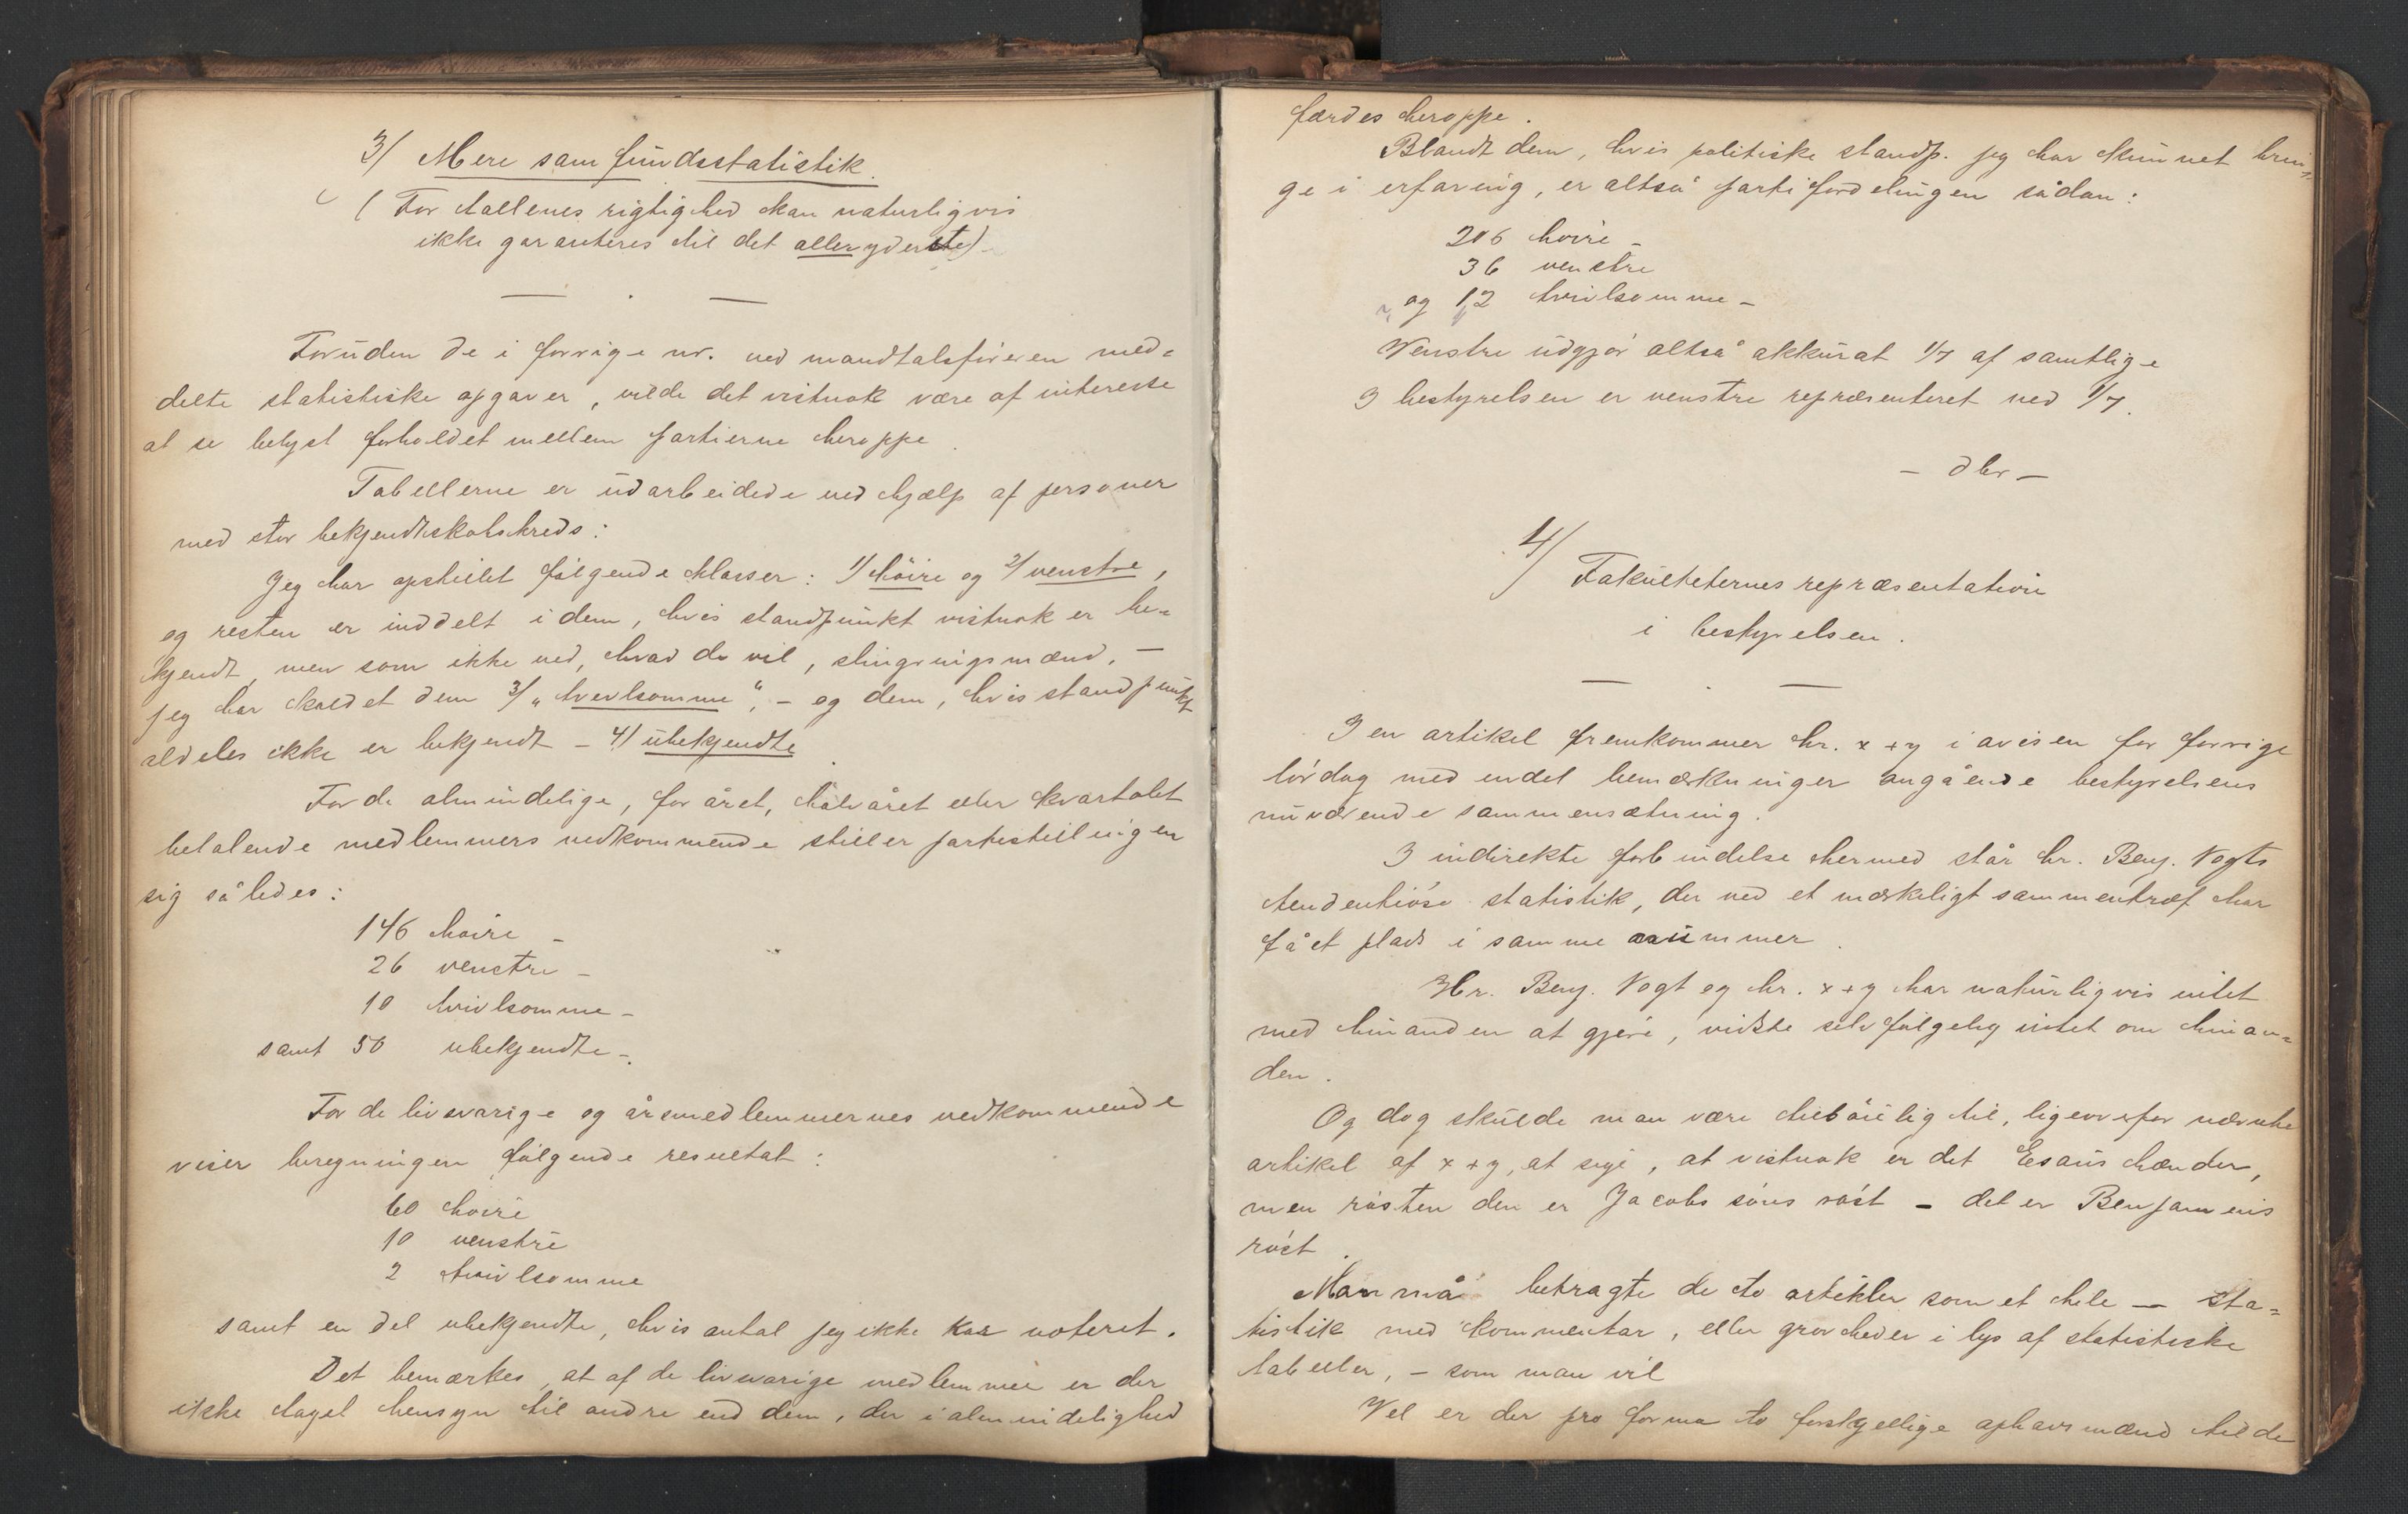 3/ Mere samfundsstatistik.
( For tallenes rigtighed kan naturligvis
ikke garanteres til det alleryderste)-
Foruden de i forrige nr. ved mandtalsføreren med-
delte statistiske opgaver, vilde det vistnok være af interesse
at se belyst forholdet mellem partierne heroppe.
Tabellerne er udarbeidede ved hjælp af personer
med stor bekjendtskabskreds:
Jeg har opstillet følgende klasser: 1/ høire og 2/ venstre,
og resten er inddelt i dem, hvis standpunkt vistnok er be-
kjendt, men som ikke ved, hvad de vil, slingringsmænd, —
jeg har kaldet dem 3/ „tvivlsomme“, - og dem, hvis standpunkt
aldeles ikke er bekjendt - 4/ ubekjendte.
For de almindelige, for året, halvåret eller kvartalet
betalende medlemmers vedkommende stiller partistillingen
sig således:
146 høire -
26 venstre -
10 tvivlsomme -
samt 50 ubekjendte -.
For de livsvarige og årsmedlemmernes vedkommende
viser beregningen følgende resultat:
60 høire
10 venstre
2 tvivlsomme
samt en del ubekjendte, hvis antal jeg ikke har noteret.
Det bemærkes, at af de livsvarige medlemmer er der
ikke taget hensyn til andre end dem, der i almindelighed
færdes heroppe.
Blandt dem, hvis politiske standp. jeg har kunnet brin-
ge i erfaring, er altså partifordelingen sådan:
206 høire -
36 venstre
og 12 tvivlsomme -
Venstre udgjør altså akkurat 1/7 af samtlige
I bestyrelsen er venstre repræsenteret ved 1/7.
4/
Fakulteternes repræsentation
i bestyrelsen.
I en artikel fremkommer hr. x + y i avisen for forrige
lørdag med endel bemærkninger angående bestyrelsens
nuværende sammensætning.
I indirekte forbindelse hermed står hr. Benj. Vogts
tendentiøse statistik, der ved et mærkeligt sammentræf har
fået plads i samme nummer.
Hr. Benj. Vogt og hr. x + y har naturligvis intet
med hinanden at gjøre, vidste selvfølgelig intet om hinan-
den.
Og dog skulde man være tilbøielig til, ligeoverfor nævnte
artikel af x + y, at sige, at vistnok er det Esaus hænder,
men røsten den er Jacobs søns røst - det er Benjamins
røst.
Man må betragte de to artikler som et hele — sta-
tistik med kommentar, eller grovheder i lys af statistiske
tabeller, - som man vil
Vel er der pro forma to forskjellige ophavsmænd til de